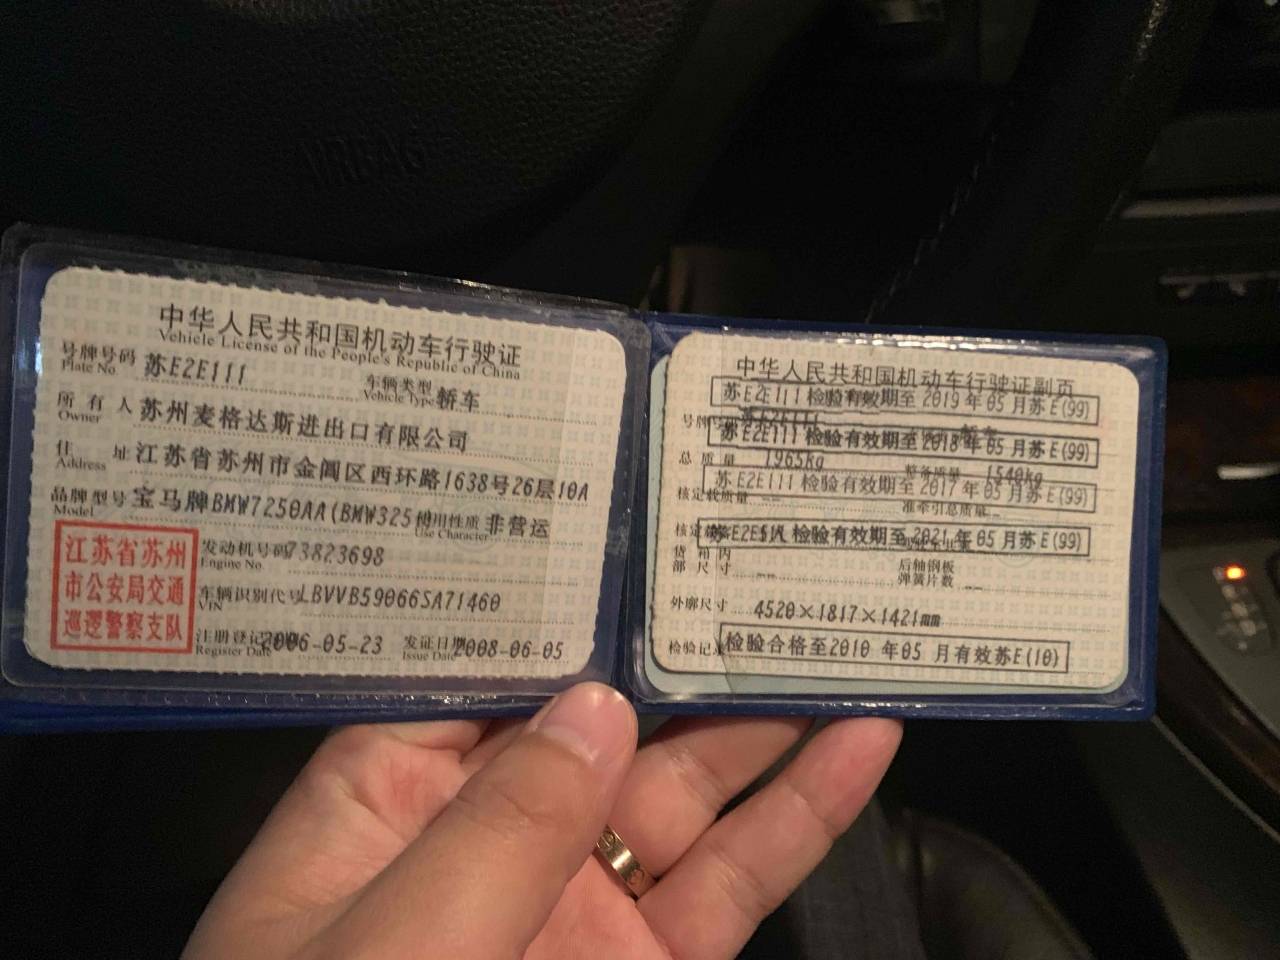 AIRBAG
中华人民共和国机动车行驶证
Vehicle License of the People's Republic of China
号牌号码 苏E2E111 车辆类型 轿车
Plate No Vehicle Type
所有人 苏州麦格达斯进出口有限公司
Owner
住址 江苏省苏州市金阊区西环路1638号26层10A
Address
品牌型号 宝马牌BMW7250AA(BMW325 使用性质 非营运
Model Use Character
江苏省苏州
市公安局交通
巡逻警察支队
发动机号码 73823698
Engine No
车辆识别代号 LBVVB59066SA71460
VIN
注册登记 2006-05-23 发证日期 2008-06-05
Register Date Issue Date
中华人民共和国机动车行驶证副页
苏E2E111 检验有效期至2019年05月苏E(99)
号牌号 苏E2E111 轿车
苏E2E111 检验有效期至2018年05月苏E(99)
总质量 1965kg 整备质量 1540kg
苏E2E111 检验有效期至2017年05月苏E(99)
核定载质量 -- 准牵引总质量 --
核定 5人
苏E2E111 检验有效期至2021年05月苏E(99)
货箱内部尺寸 -- 后轴钢板弹簧片数 --
外廓尺寸 4520×1817×1421mm
检验记 检验合格至2010年05月有效苏E(10)